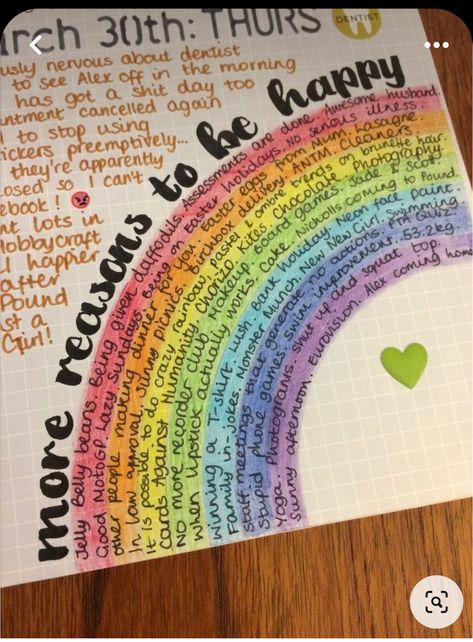 arch 30th: THURS
DENTIST
usly nervous about dentist
to see Alex off in the morning
has got a shit day too
intment cancelled again
to stop using
ickers preemptively...
they're apparently
osed so I can't
ebook!
nt lots in
Hobbycraft
happier
after
Pound
st a
Girl!
more reasons to be happy
Jelly Belly beans. Being given daffodils. Assessments are done. Awesome husband.
Good MotoGP. Lazy Sundays. Being on Easter holidays. No serious illness.
other people making dinner for you. Easter eggs from Mum. Lasagne.
In law approval. Sunny picnics. Birchbox delivery. ANTM. Cleaners.
It is possible to do crazy rainbow pastel ombre hair on brunette hair.
Cards Against Humanity. Chorizo. Kites. Chocolate. Photography.
No more decade club. Makeup. Board games. Jade + Scott
when lipstick actually works. Cake. Nicholls coming to Pound.
winning a T-shirt. Lush. Bank holiday. Neon face paint.
Family in-jokes. Monster Munch. New New Girl. Swimming
staff meetings that generate no actions. Pub quiz
stupid phone games. Swim improvement. 53.2kg.
Yoga photograms. Shut up and squat top.
Sunny afternoon. Eurovision. Alex coming home